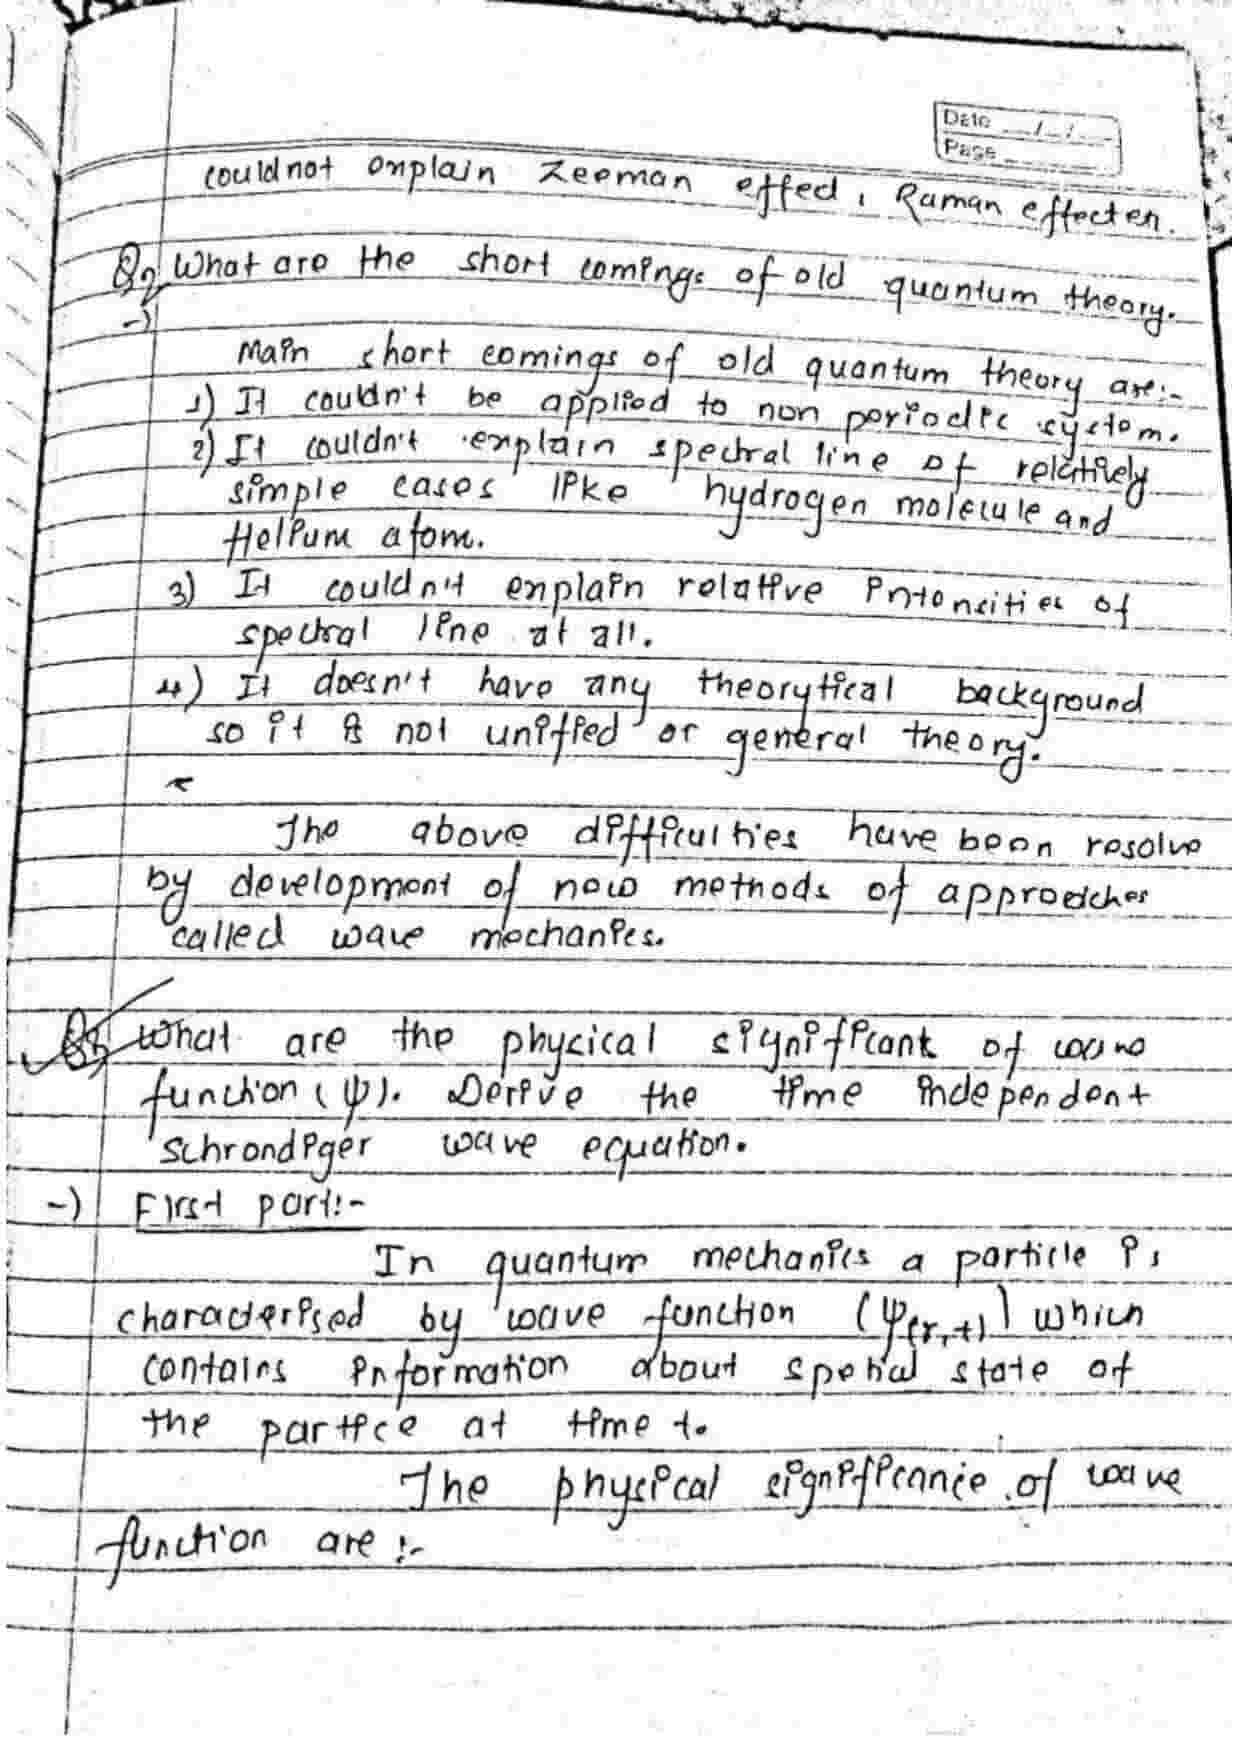 Date __/__/__
Page
couldnot explain Zeeman effect, Raman effect etc.
Q2 What are the short comings of old quantum theory.
→
Main short comings of old quantum theory are:-
1) It couldn't be applied to non periodic system.
2) It couldn't explain spectral line of relatively
simple cases like hydrogen molecule and
Helium atom.
3) It couldn't explain relative intensities of
spectral line at all.
4) It doesn't have any theorytical background
so it is not unified or general theory.
The above difficulties have been resolve
by development of new methods of approaches
called wave mechanics.
What are the physical significant of wave
function (ψ). Derive the time independent
schrondiger wave equation.
→) First part:-
In quantum mechanics a particle is
characterised by wave function (ψ(r,t)) which
contains information about spatial state of
the partice at time t.
The physical significance of wave
function are :-